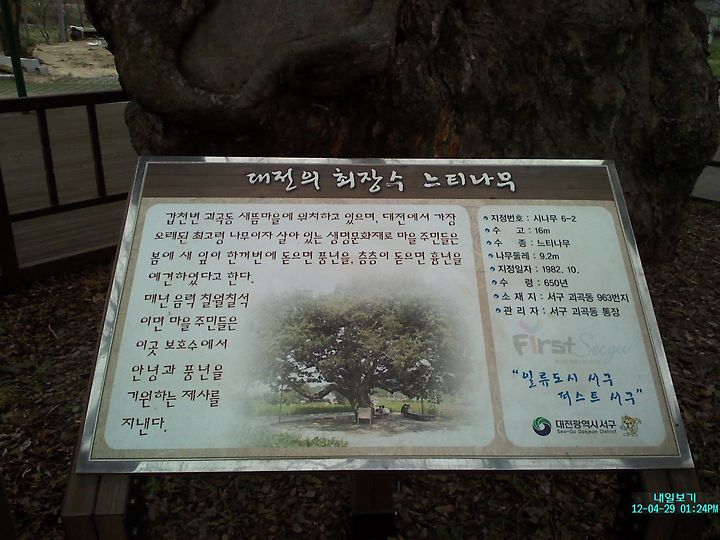 대전의 최장수 느티나무
갑천변 괴곡동 새뜸마을에 위치하고 있으며, 대전에서 가장
오래된 최고령 나무이자 살아 있는 생명문화재로 마을 주민들은
봄에 새 잎이 한꺼번에 돋으면 풍년을, 층층이 돋으면 흉년을
예견하였다고 한다.
매년 음력 칠월칠석
이면 마을 주민들은
이곳 보호수에서
안녕과 풍년을
기원하는 제사를
지낸다.
지정번호 : 시나무 6-2
수 고 : 16m
수 종 : 느티나무
나무둘레 : 9.2m
지정일자 : 1982. 10.
수 령 : 650년
소 재 지 : 서구 괴곡동 963번지
관 리 자 : 서구 괴곡동 통장
First Seogu
"일류도시 서구
퍼스트 서구"
대전광역시서구
Seo-Gu Daejeon District
내일보기
12-04-29 01:24PM